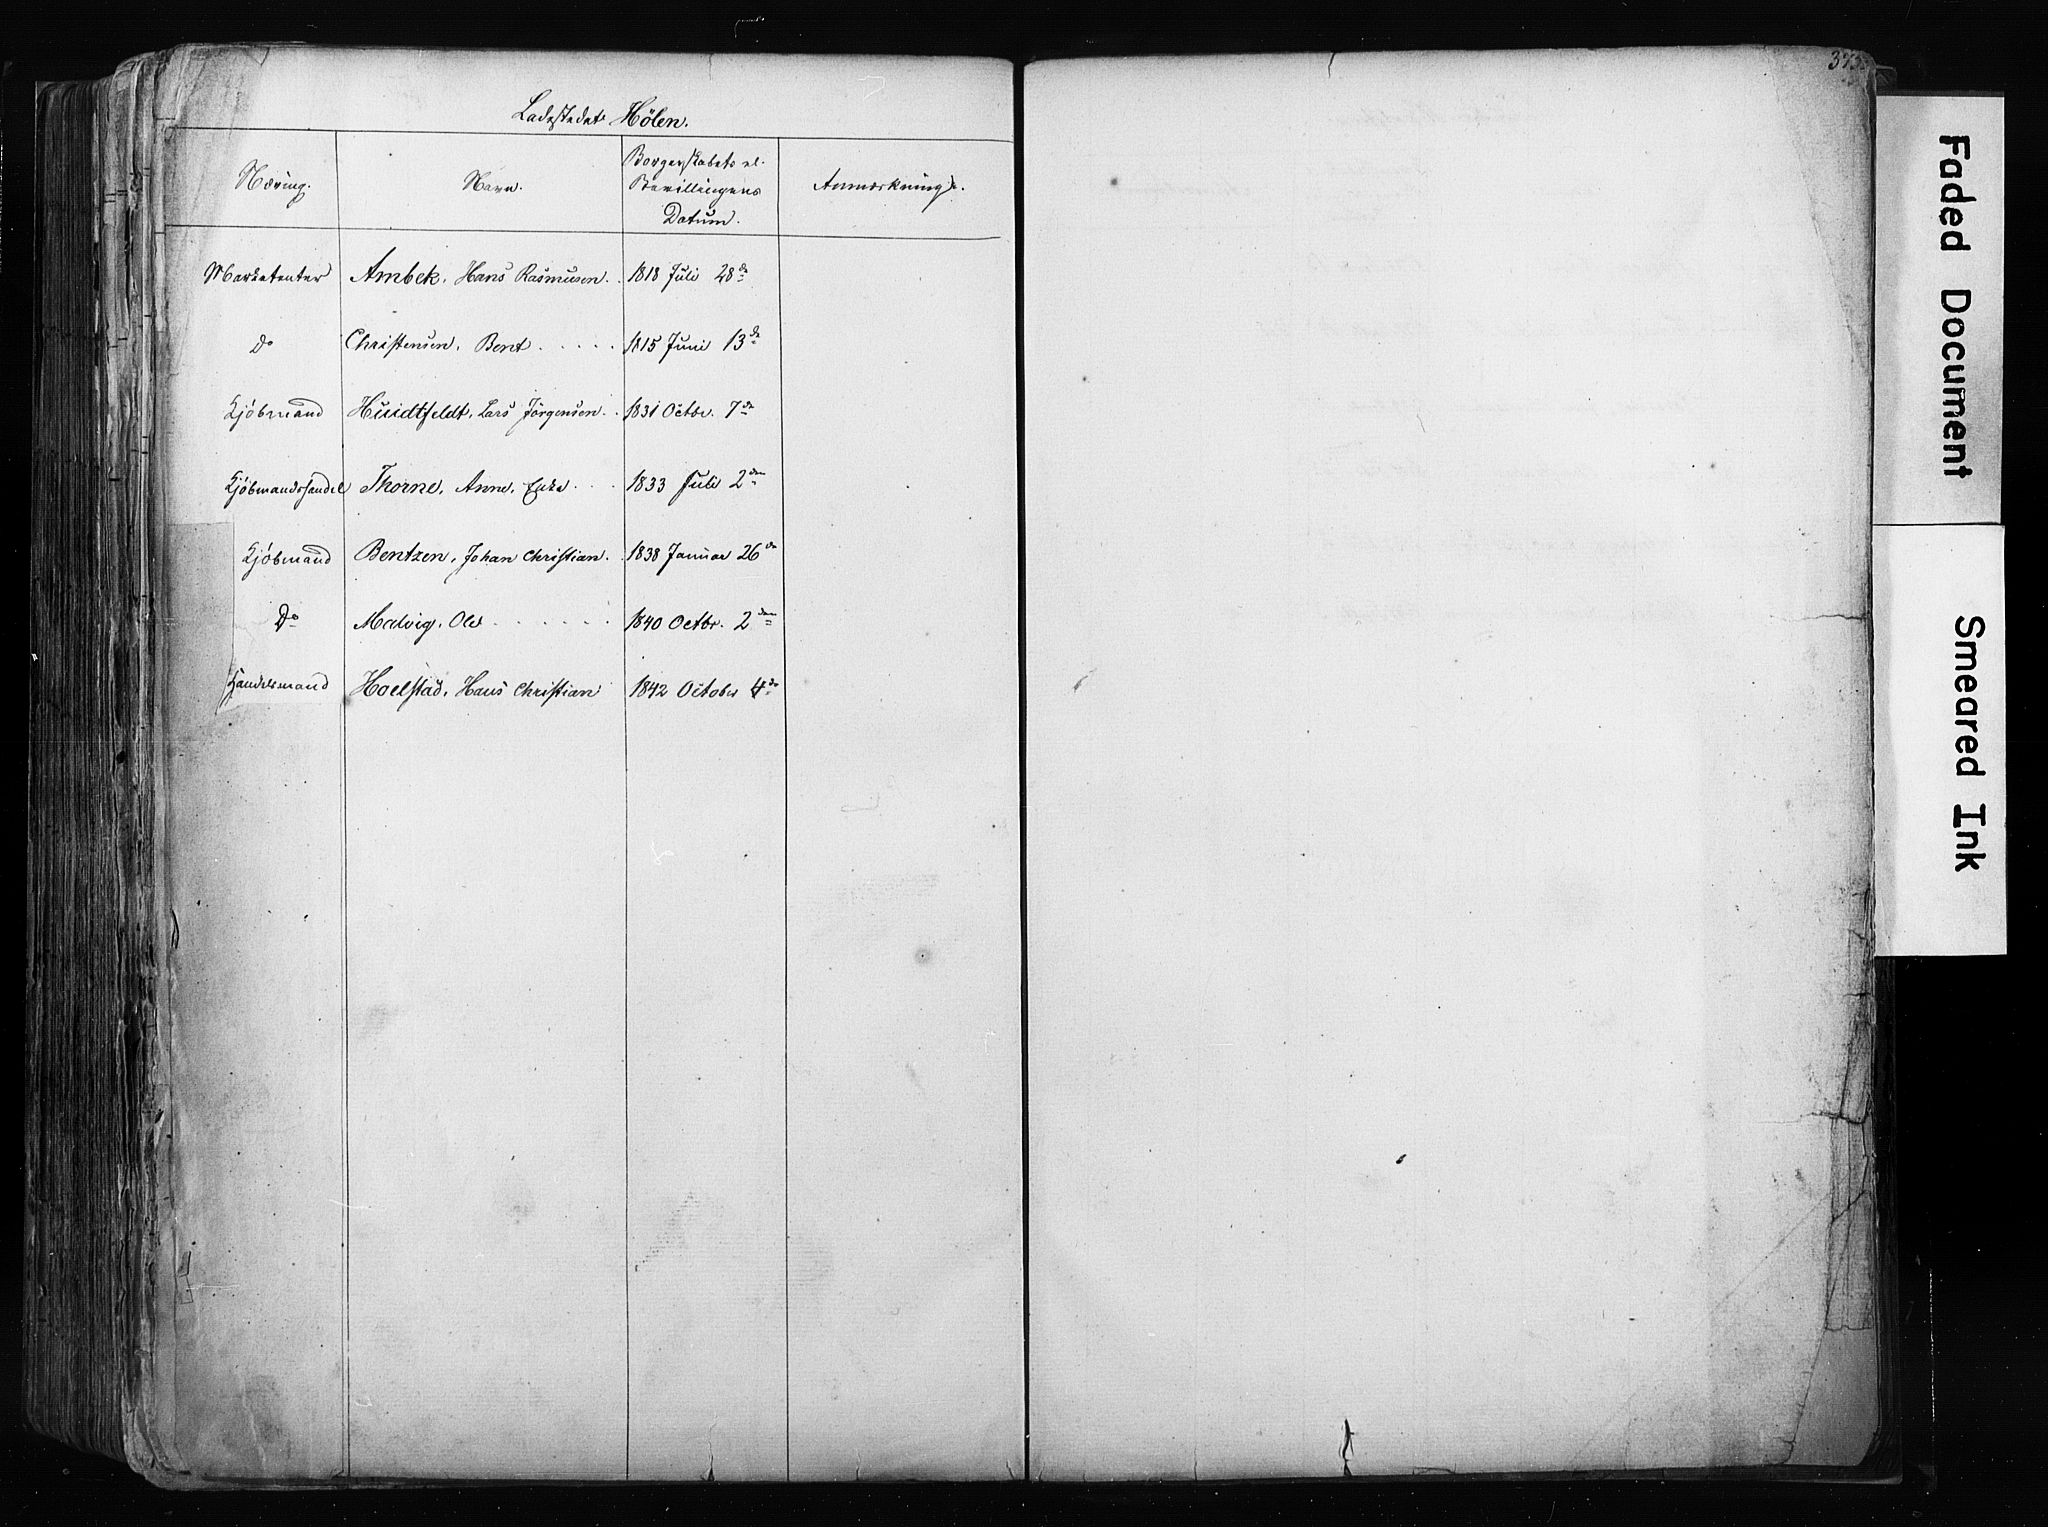 373.
Ladestedet Hölen.
Næring. Navn. Borgerskabets el. Bevillingens Datum. Anmærkning.
Marketenter Ambek, Hans Rasmusen. 1818 Juli 28de
do Christensen, Bent 1815 Juni 13de
Kjöbmand Huidtfeldt, Lars Jörgensen 1831 Octbr. 7de
Kjöbmandshandel Thorne, Anne, Enke 1833 Juli 2den
Kjöbmand Bentzen, Johan Christian 1838 Januar 26de
Do Malvig, Ole 1840 Octbr. 2den
Handelsmand Hoelstad, Hans Christian 1842 October 4de
Faded Document
Smeared Ink